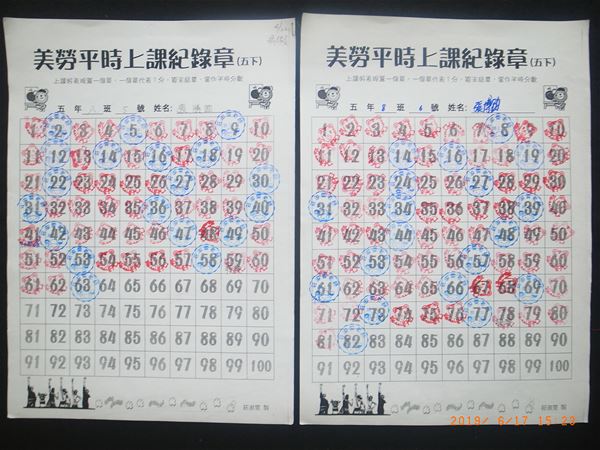 美勞平時上課紀錄章(五下)
五年 八班 5號 姓名:
1 2 3 4 5 6 7 8 9 10
11 12 13 14 15 16 17 18 19 20
21 22 23 24 25 26 27 28 29 30
31 32 33 34 35 36 37 38 39 40
41 42 43 44 45 46 47 48 49 50
51 52 53 54 55 56 57 58 59 60
61 62 63 64 65 66 67 68 69 70
71 72 73 74 75 76 77 78 79 80
81 82 83 84 85 86 87 88 89 90
91 92 93 94 95 96 97 98 99 100
美勞平時上課紀錄章(五下)
五年 8班 6號 姓名:
1 2 3 4 5 6 7 8 9 10
11 12 13 14 15 16 17 18 19 20
21 22 23 24 25 26 27 28 29 30
31 32 33 34 35 36 37 38 39 40
41 42 43 44 45 46 47 48 49 50
51 52 53 54 55 56 57 58 59 60
61 62 63 64 65 66 67 68 69 70
71 72 73 74 75 76 77 78 79 80
81 82 83 84 85 86 87 88 89 90
91 92 93 94 95 96 97 98 99 100
2019/ 6/17 15:23